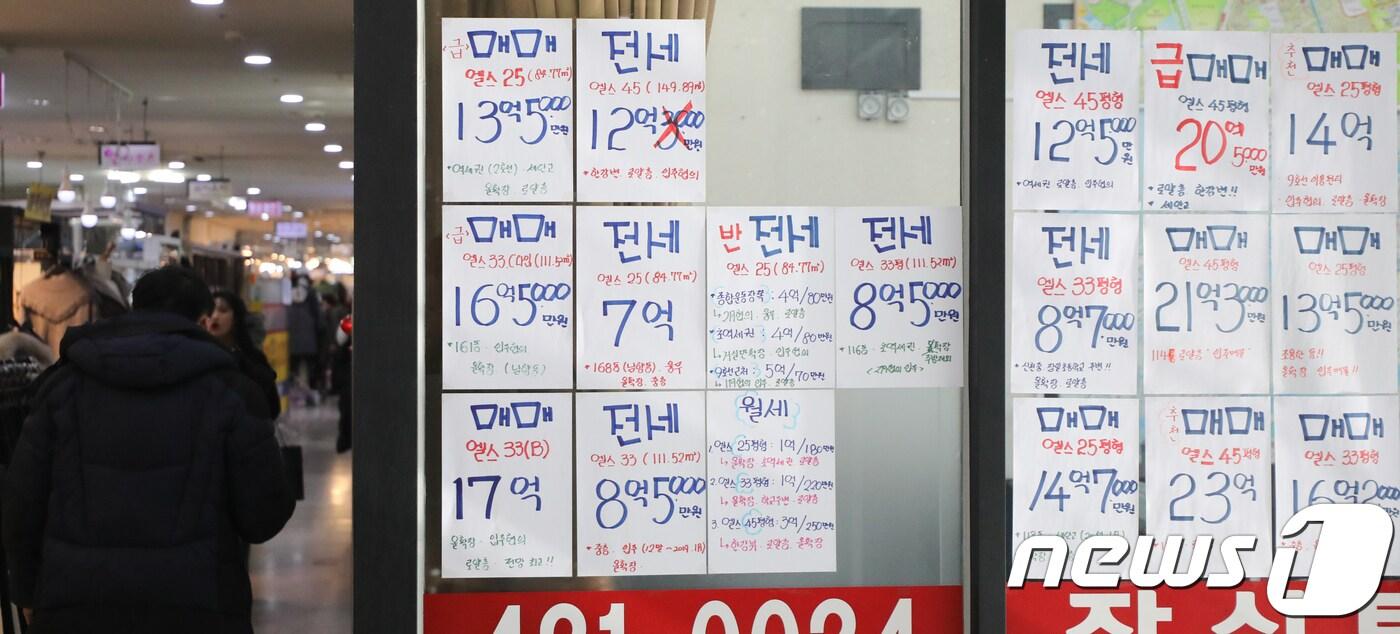 <급> 매매
엘스 25 (84.77㎡)
13억 5000만원
*역세권 (2호선) 세안고
올확장 로얄층
전세
엘스 45 (149.89㎡)
12억 3000만원
*한강변. 로얄층. 입주협의
<급> 매매
엘스 33.(111.5㎡)
16억 5000만원
*161동. 입주협의
올확장 (남향동)
전세
엘스 25 (84.77㎡)
7억
*168동 (남향동). 올수
올확장. 중층
반 전세
엘스 25 (84.77㎡)
*종합운동장쪽: 4억/80만원
*초역세권: 4억/80만원
↳거실만확장. 입주협의
*9호선근처: 5억/70만원
전세
엘스 33평 (111.52㎡)
8억 5000만원
*116동. 초역세권. 올확장
매매
엘스 33(B)
17억
올확장. 입주협의
로얄층. 전망 최고!!
전세
엘스 33 (111.52㎡)
8억 5000만원
*중층. 입주 (12말~2019.1月)
올확장.
월세
1.엘스 25평형: 1억/180만원
↳올확장. 초역세권. 로얄층
2.엘스 33평형: 1억/220만원
↳올확장. 학교주변. 로얄층
3.엘스 45평형: 3억/250만원
↳한강뷰. 로얄층. 올확장
전세
엘스 45평형
12억 5000만원
*역세권. 로얄층. 입주협의
급 매매
엘스 45평형
20억 5000만원
*로얄층 한강변!!
*세안고
추천 매매
엘스 25평형
14억
9호선 이용편리
입주협의. 로얄층. 올확장
전세
엘스 33평형
8억 7000만원
올확장. 로얄층
매매
엘스 45평형
21억 3000만원
로얄층 "입주매물"
매매
엘스 25평형
13억 5000만원
조용한 동!!
올확장. 입주매물!!
매매
엘스 25평형
14억 7000만원
추천 매매
엘스 45평형
23억
매매
엘스 33평형
16억 2000
421-0024
news1